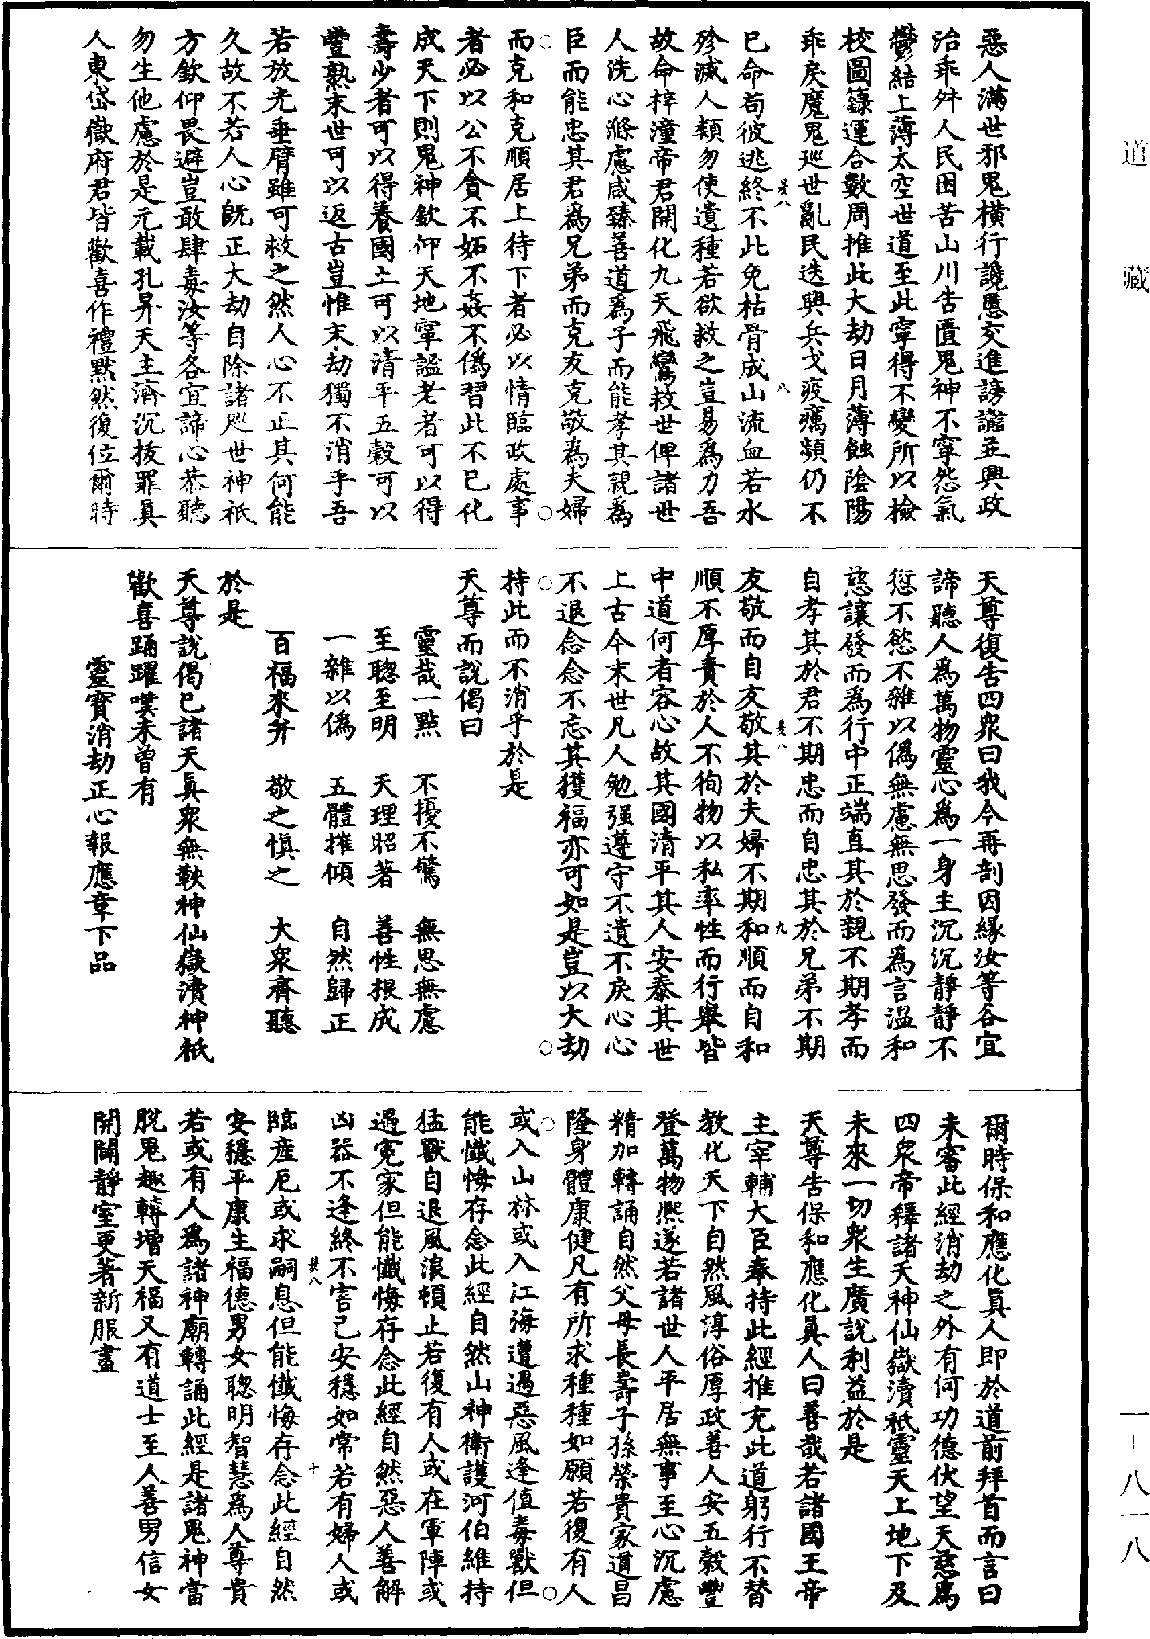 道藏
惡人滿世邪鬼橫行讒慝交進謗讟並興政
治乖舛人民困苦山川告匱鬼神不寧怨氣
鬱結上薄太空世道至此寧得不變所以檢
校圖籙運合數周推此大劫日月薄蝕陰陽
乖戾魔鬼巡世亂民迭興兵戈疫癘頻仍不
已命苟彼逃終不此免枯骨成山流血若水
殄滅人類勿使遺種若欲救之豈易為力吾
故命梓潼帝君開化九天飛鸞救世俾諸世
人洗心滌慮咸臻善道為子而能孝其親為
臣而能忠其君為兄弟而克友克敬為夫婦
而克和克順居上待下者必以情臨政處事
者必以公不貪不妬不姦不偽習此不已化
成天下則鬼神欽仰天地寧謐老者可以得
壽少者可以得養國土可以清平五穀可以
豐熟末世可以返古豈惟末劫獨不消乎吾
若放光垂臂雖可救之然人心不正其何能
久故不若人心既正大劫自除諸巡世神祇
方欽仰畏避豈敢肆毒汝等各宜諦心恭聽
勿生他慮於是元載孔昇天主濟沉拔罪真
人東岱嶽府君皆歡喜作禮默然復位爾時
天尊復告四眾曰我今再剖因緣汝等各宜
諦聽人為萬物靈心為一身主沉沉靜靜不
愆不慾不雜以偽無慮無思發而為言溫和
慈讓發而為行中正端直其於親不期孝而
自孝其於君不期忠而自忠其於兄弟不期
友敬而自友敬其於夫婦不期和順而自和
順不厚責於人不徇物以私率性而行舉皆
中道何者容心故其國清平其人安泰其世
上古今末世凡人勉强遵守不遺不戾心心
不退念念不忘其獲福亦可如是豈以大劫
持此而不消乎於是
天尊而說偈曰
靈哉一點　不擾不驚　無思無慮
至聰至明　天理昭著　善性根成
一雜以偽　五體摧傾　自然歸正
百福來并　敬之慎之　大眾齊聽
於是
天尊說偈已諸天真眾無鞅神仙嶽瀆神祇
歡喜踊躍嘆未曾有
靈寶消劫正心報應章下品
爾時保和應化真人即於道前拜首而言曰
未審此經消劫之外有何功德伏望天慈為
四眾帝釋諸天神仙嶽瀆祇靈天上地下及
未來一切眾生廣說利益於是
天尊告保和應化真人曰善哉若諸國王帝
主宰輔大臣奉持此經推充此道躬行不替
教化天下自然風淳俗厚政善人安五穀豐
登萬物熙遂若諸世人平居無事至心沉慮
精加轉誦自然父母長壽子孫榮貴家道昌
隆身體康健凡有所求種種如願若復有人
或入山林或入江海遭遇惡風逢值毒獸但
能懺悔存念此經自然山神衛護河伯維持
猛獸自退風浪頓止若復有人或在軍陣或
遇冤家但能懺悔存念此經自然惡人善解
凶器不逢終不害已安穩如常若有婦人或
臨產厄或求嗣息但能懺悔存念此經自然
安穩平康生福德男女聰明智慧為人尊貴
若或有人為諸神廟轉誦此經是諸鬼神當
脫鬼趣轉增天福又有道士至人善男信女
開闢靜室更著新服盡
一—八一八